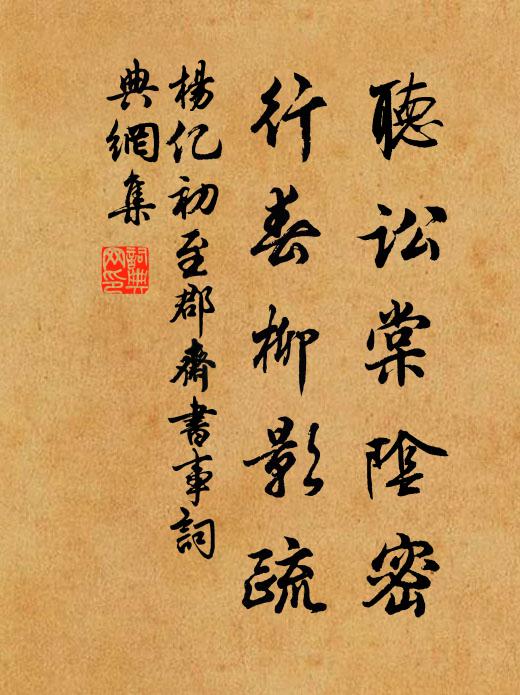 聽訟棠陰密
行春柳影疏
楊億初至郡齋書事詞
典網集
詞典
网印